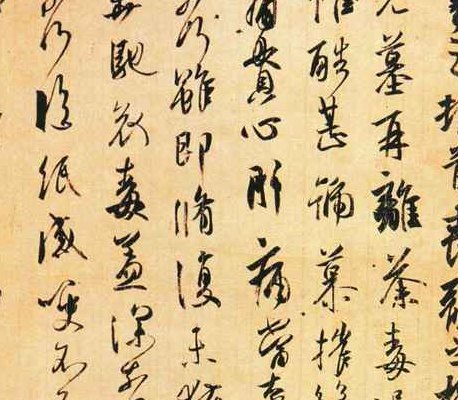 之頓首喪亂之極
先墓再離荼毒追
惟酷甚號慕摧絕
痛貫心肝痛當奈
何雖即脩復未獲
奔馳哀毒益深奈
何臨紙感哽不知